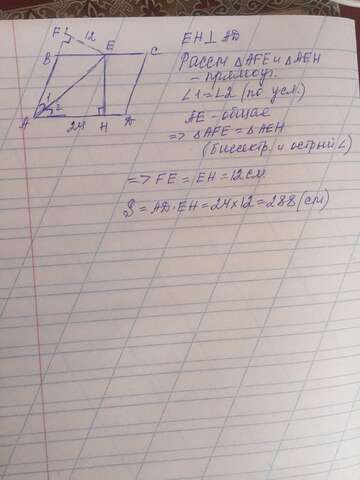 F 12
B E C
1
2
A 24 H D
EH⊥AD
Рассм △AFE и △AEH
- прямоуг.
∠1=∠2 (по усл.)
AE - общая
=> △AFE = △AEH
(биссектр. и острый ∠)
=> FE = EH = 12 см
S = AD·EH = 24×12 = 288 (см)